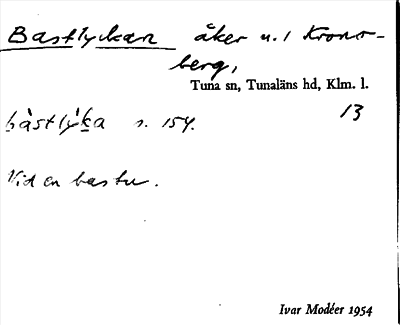 Bastlyckan åker u. / Krono-
berg,
Tuna sn, Tunaläns hd, Klm. l.
13
bàstly̍ka s. 154.
Vid en bastu.
Ivar Modéer 1954